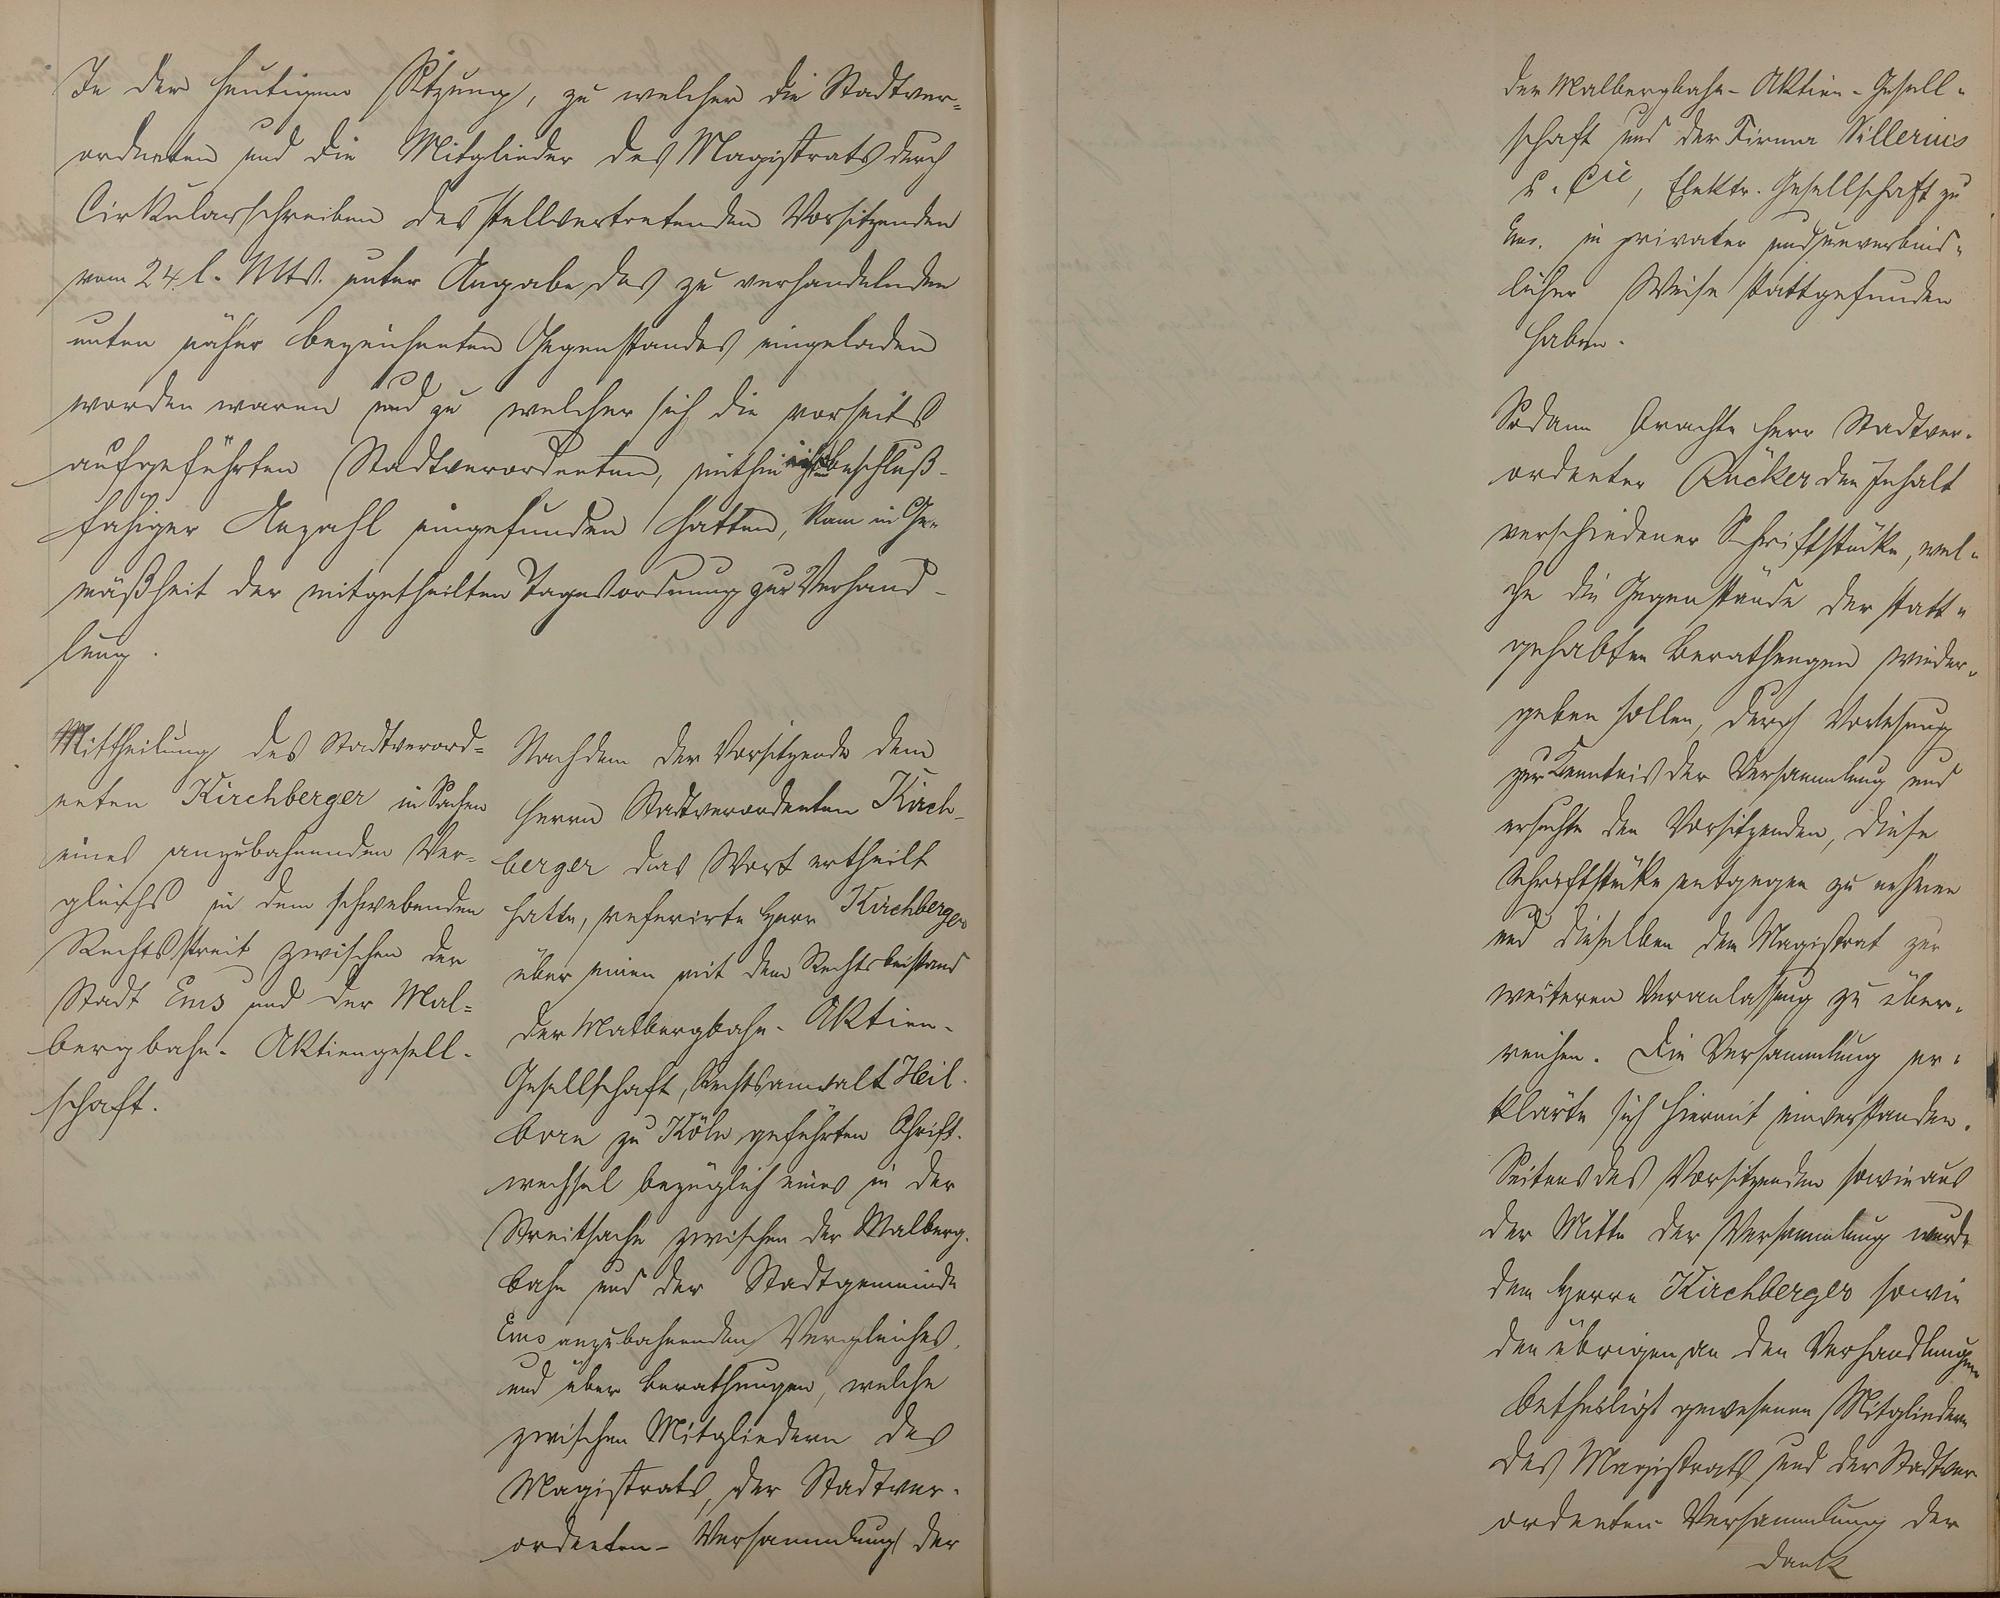 In der heutigen Sitzung, zu welcher die Stadtver-
ordneten und die Mitglieder des Magistrats durch
Cirkularschreiben des stellvertretenden Vorsitzenden
vom 24. l. Mts. unter Angabe des zu verhandelnden
unten näher bezeichneten Gegenstandes eingeladen
worden waren und zu welcher sich die vorseits
aufgeführten Stadtverordneten, mithin in beschluß-
fähiger Anzahl eingefunden hatten, kam in Ge-
mäßheit der mitgetheilten Tagesordnung zur Verhand-
lung.
Mittheilung des Stadtverord-
neten Kirchberger in Sachen
eines anzubahnenden Ver-
gleichs in dem schwebenden
Rechtsstreit zwischen der
Stadt Ems und der Mal-
bergbahn- Aktiengesell-
schaft.
Nachdem der Vorsitzende dem
Herrn Stadtverordneten Kirch-
berger das Wort ertheilt
hatte, referirte Herr Kirchberger
über einen mit dem Rechtsbeistand
der Malbergbahn- Aktien-
Gesellschaft, Rechtsanwalt Heil-
born zu Köln geführten Schrift-
wechsel bezüglich eines in der
Streitsache zwischen der Malberg-
bahn und der Stadtgemeinde
Ems anzubahnenden Vergleiches,
und über Berathungen, welche
zwischen Mitgliedern des
Magistrats, der Stadtver-
ordneten- Versammlung, der
der Malbergbahn- Aktien- Gesell-
schaft und der Firma
u. Cie, Elektr. Gesellschaft zu
Ems, in privater und unverbind-
licher Weise stattgefunden
haben.
Sodann brachte Herr Stadtver-
ordneter Rücker den Inhalt
verschiedener Schriftstücke, wel-
che die Gegenstände der statt-
gehabten Berathungen wieder-
geben sollen, durch Vorlesung
zur Kenntnis der Versammlung und
ersuchte den Vorsitzenden, diese
Schriftstücke entgegen zu nehmen
und dieselben dem Magistrat zur
weiteren Veranlassung zu über-
reichen. Die Versammlung er-
klärte sich hiermit einverstanden.
Seitens des Vorsitzenden sowie aus
der Mitte der Versammlung wurde
dem Herrn Kirchberger sowie
den übrigen an den Verhandlungen
betheiligt gewesenen Mitgliedern
des Magistrats und der Stadtver-
ordneten- Versammlung der
Dank